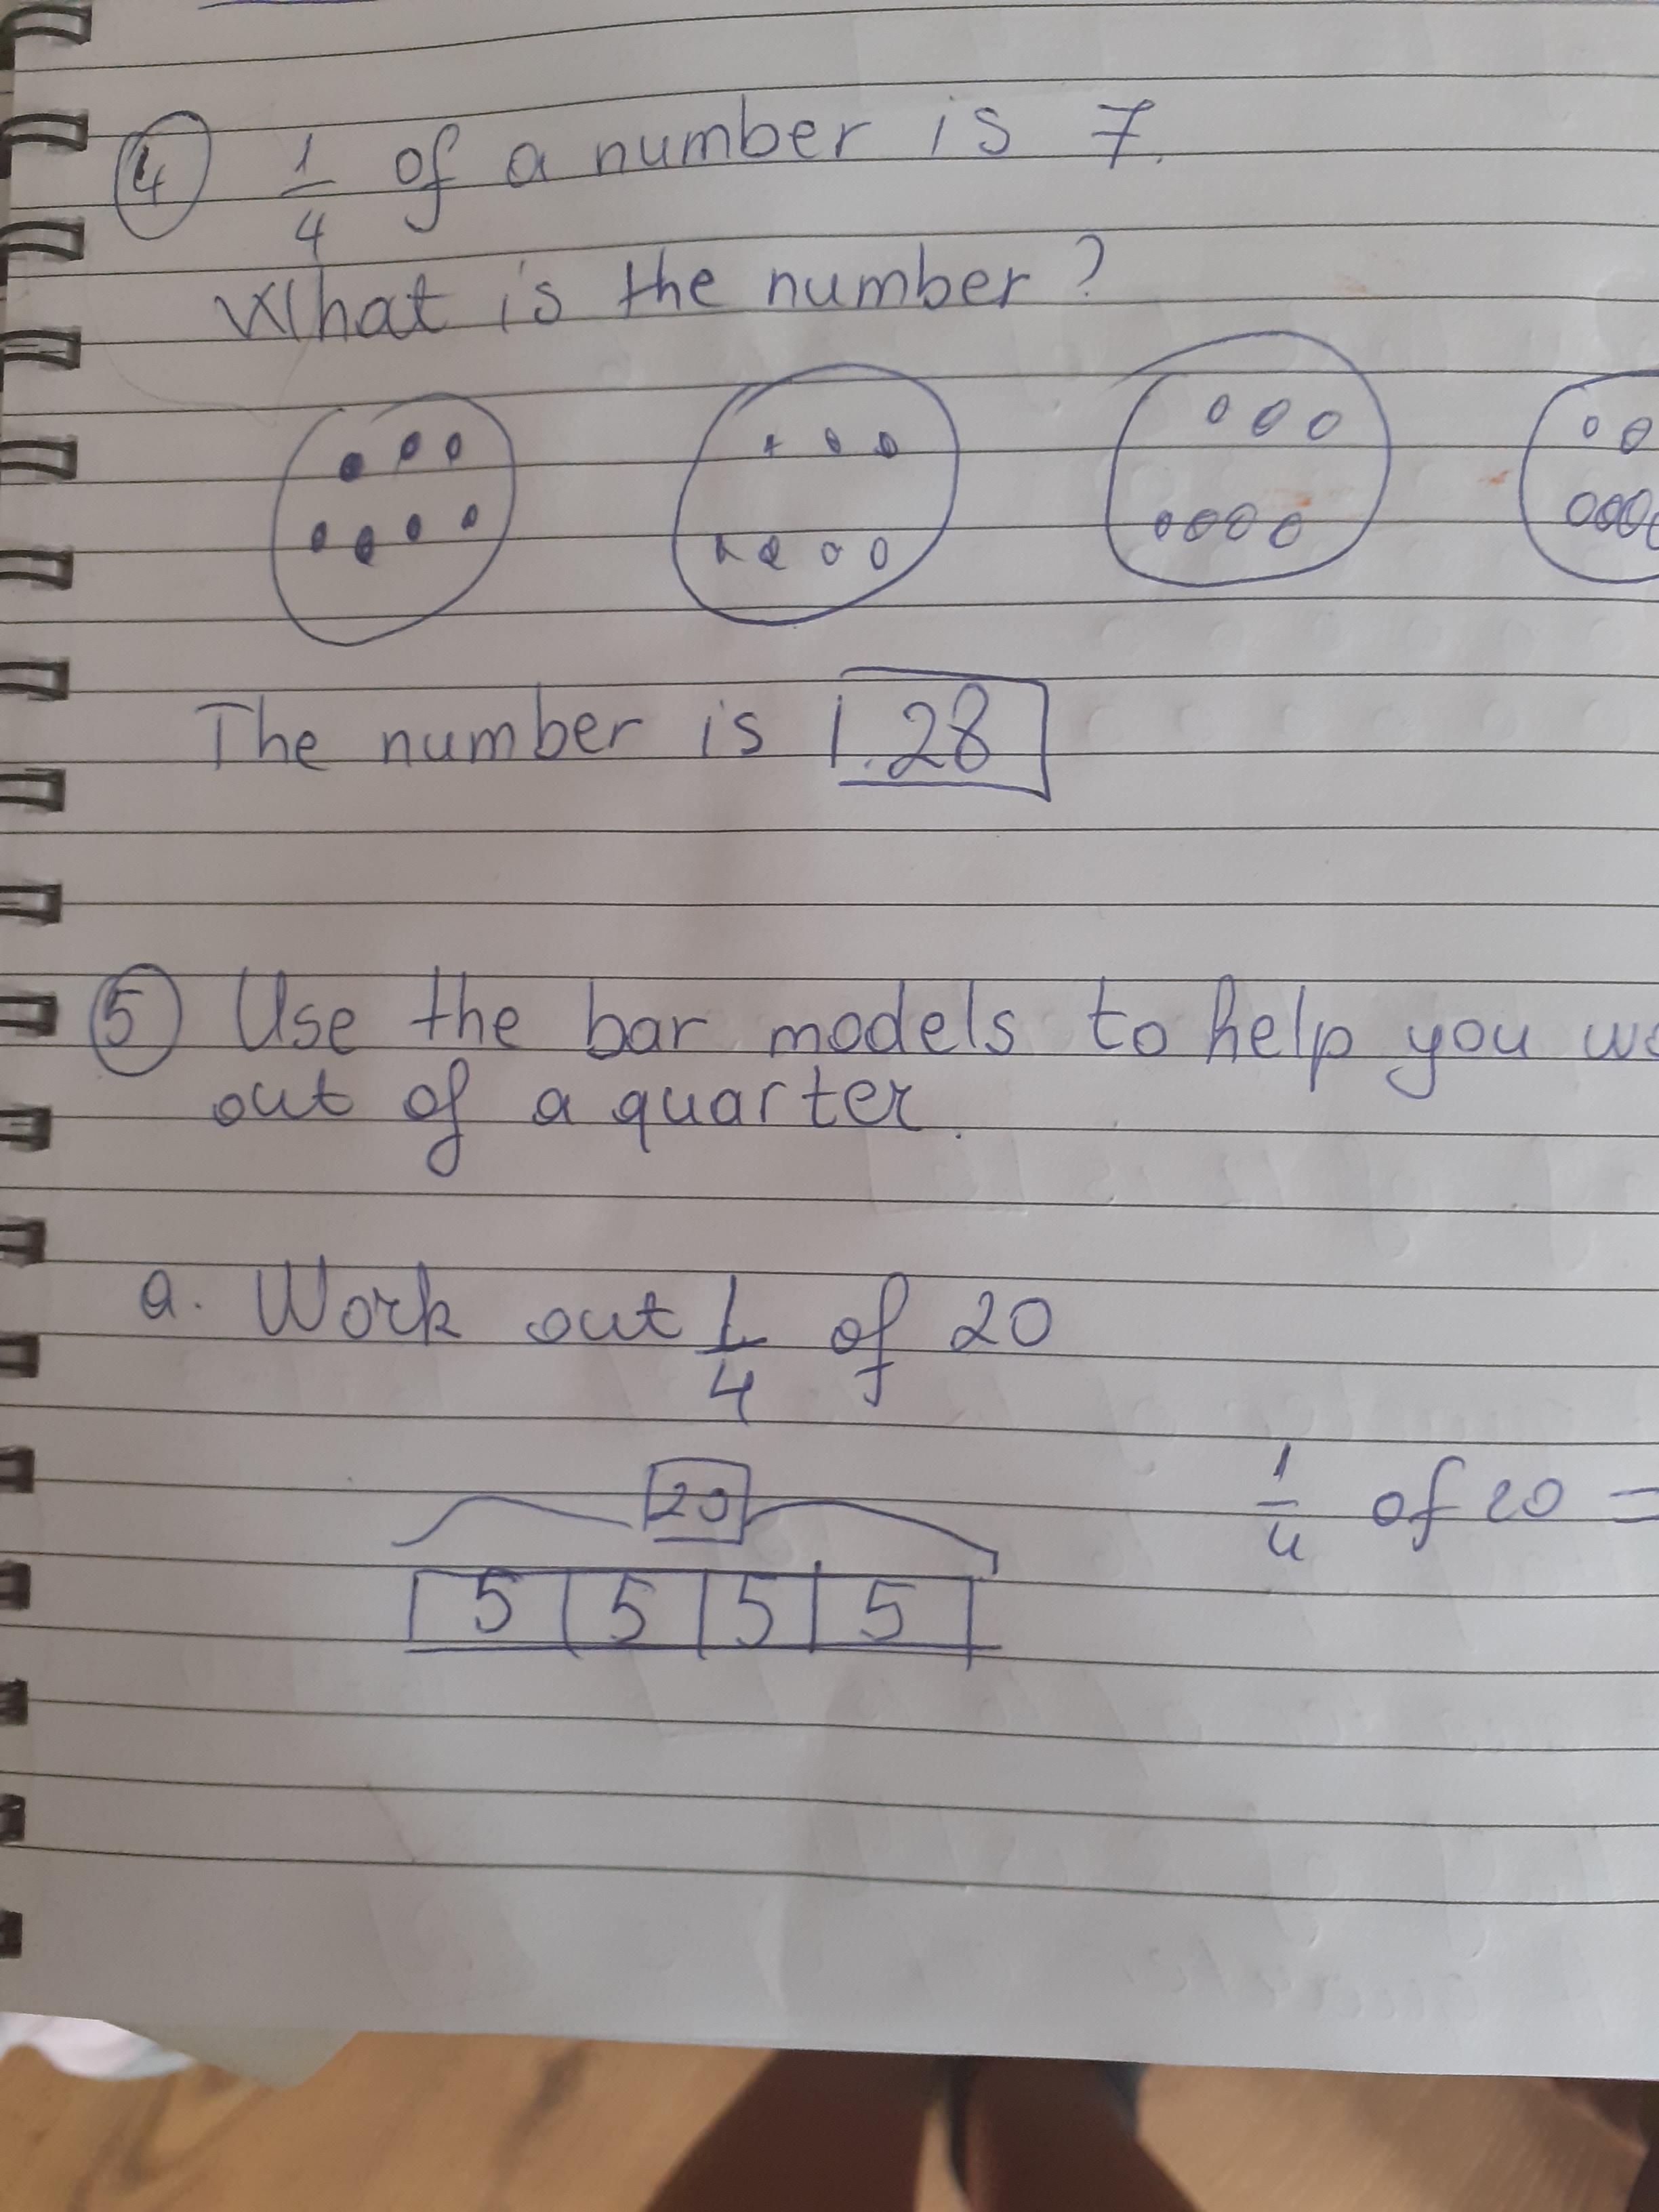 4 1/4 of a number is 7.
What is the number?
The number is 28
5 Use the bar models to help you
out of a quarter.
a. Work out 1/4 of 20
20
1/4 of 20 =
5 5 5 5